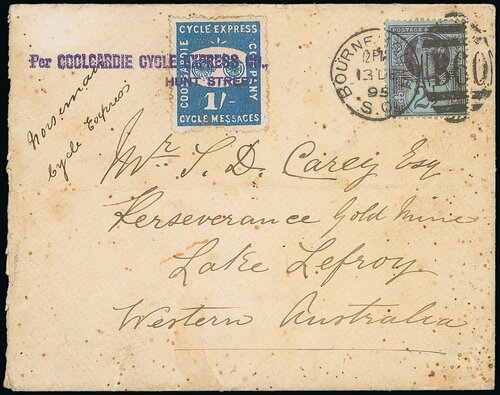 Per COOLGARDIE CYCLE EXPRESS Co.,
HUNT STREET
CYCLE EXPRESS
COOLGARDIE
COMPANY
1/-
CYCLE MESSAGES
BOURNE
13 DE
95
S.O
POSTAGE &
2½
Norseman
Cycle Express
Mr. S. D. Carey Esq
Perseverance Gold Mine
Lake Lefroy
Western Australia